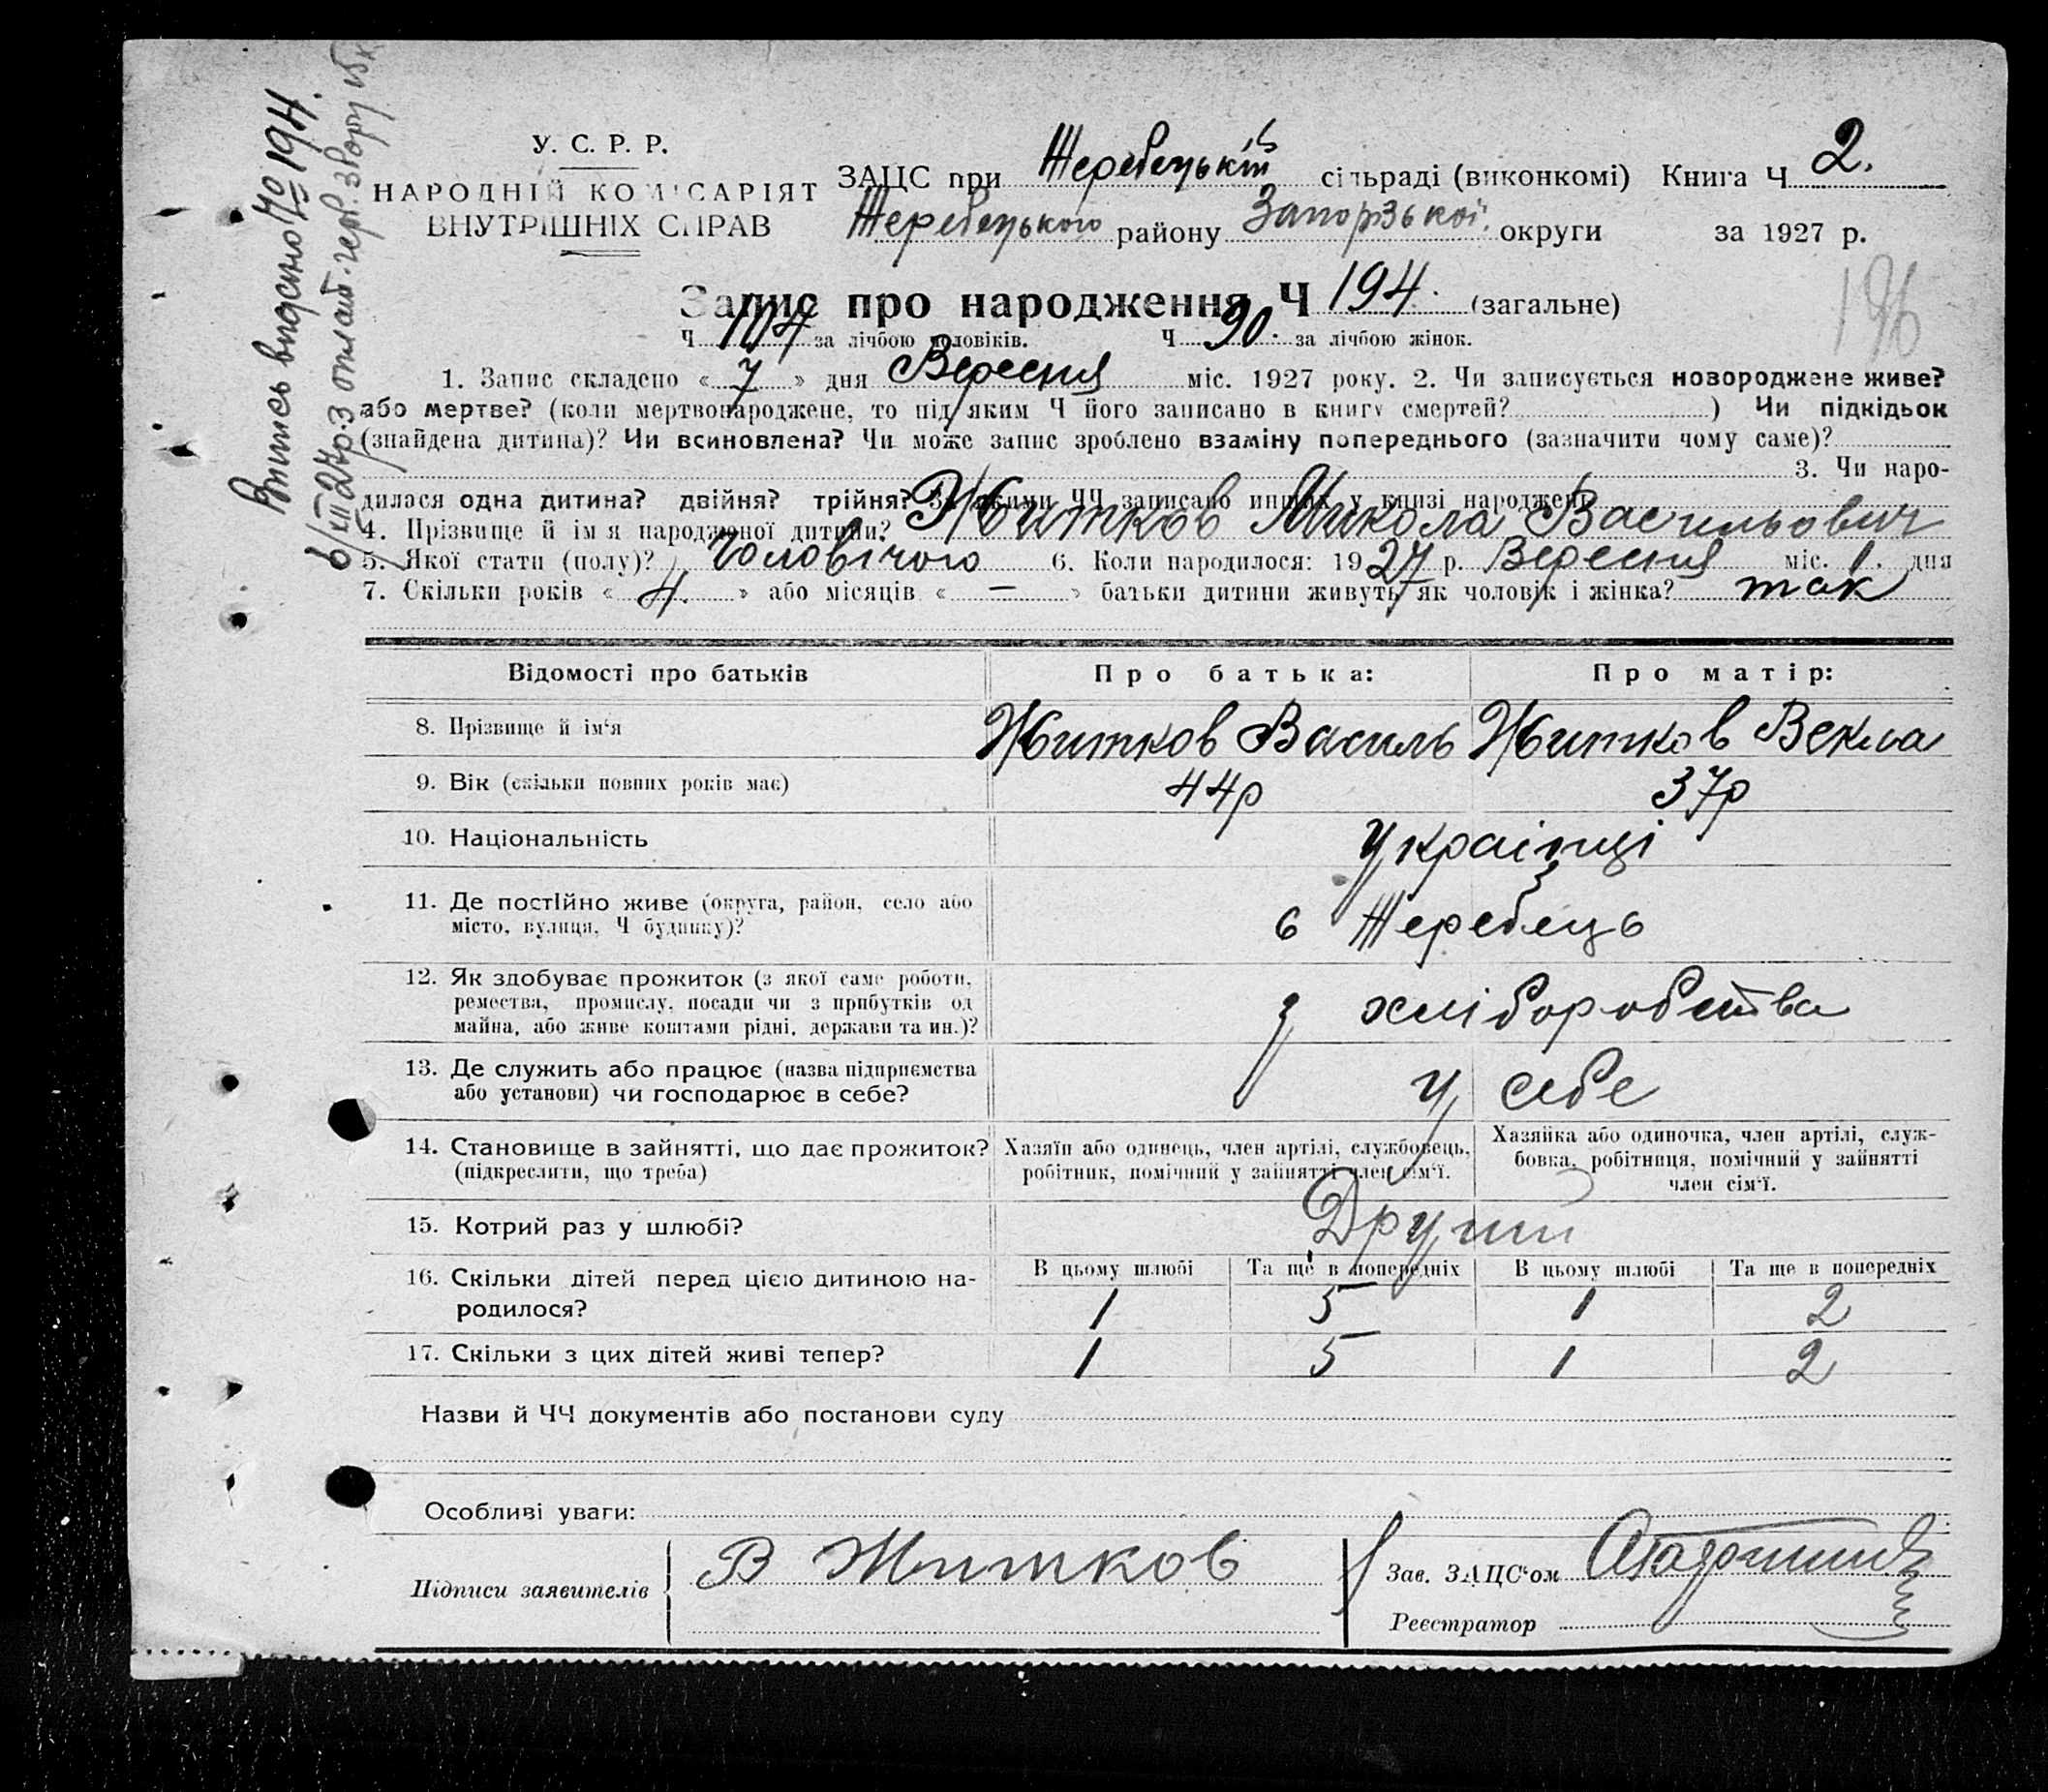 Витись видано № 194.
6/XII 27 р. з оплат. герб. збору
У. С. Р. Р.
НАРОДНІЙ КОМІСАРІЯТ
ВНУТРІШНІХ СПРАВ
ЗАЦС при Жеребецькій сільраді (виконкомі) Книга Ч 2.
Жеребецького району Запорізької округи за 1927 р.
196
Запис про народження Ч 194. (загальне)
Ч 104 за лічбою чоловіків. Ч 90. за лічбою жінок.
1. Запис складено « 7 » дня Вересня міс. 1927 року. 2. Чи записується новороджене живе?
або мертве? (коли мертвонароджене, то під яким Ч його записано в книгу смертей? ) Чи підкідьок
(знайдена дитина)? Чи всиновлена? Чи може запис зроблено взаміну попереднього (зазначити чому саме)?
3. Чи наро-
дилася одна дитина? двійня? трійня? За якими ЧЧ записано инших у книзі народжень
4. Прізвище й ім'я народженої дитини? Житков Микола Васильович
5. Якої стати (полу)? Чоловічого 6. Коли народилося: 1927 р. Вересня міс. 1. дня
7. Скільки років « 4. » або місяців « — » батьки дитини живуть як чоловік і жінка? так
Відомості про батьків Про батька: Про матір:
8. Прізвище й ім'я Житков Василь Житков Векла
9. Вік (скільки повних років має) 44р 37р
10. Національність Українці
11. Де постійно живе (округа, район, село або
місто, вулиця, Ч будинку)? с Жеребець
12. Як здобуває прожиток (з якої саме роботи,
ремества, промислу, посади чи з прибутків од
майна, або живе коштами рідні, держави та ин.)? з хліборобства
13. Де служить або працює (назва підприємства
або установи) чи господарює в себе? у себе
14. Становище в зайнятті, що дає прожиток?
(підкреслити, що треба)
Хазяїн або одинець, член артілі, службовець,
робітник, помічний у зайнятті член сім'ї.
Хазяйка або одиночка, член артілі, служ-
бовка, робітниця, помічний у зайнятті
член сім'ї.
15. Котрий раз у шлюбі? Другий
16. Скільки дітей перед цією дитиною на-
родилося?
В цьому шлюбі Та ще в попередніх В цьому шлюбі Та ще в попередніх
1 5 1 2
17. Скільки з цих дітей живі тепер? 1 5 1 2
Назви й ЧЧ документів або постанови суду
Особливі уваги:
Підписи заявителів В Житков
Зав. ЗАЦС'ом
Реєстратор